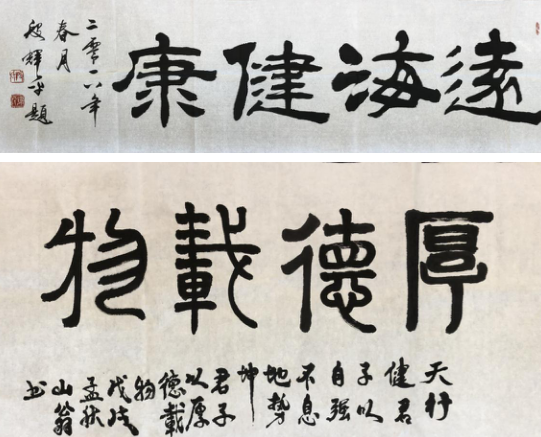 遠海健康
二零一八年
春月
輝題
厚德載物
天行
健君
子以
自强
不息
地勢
坤
君子
以厚
德載
物
戊戌
孟秋
山翁
书